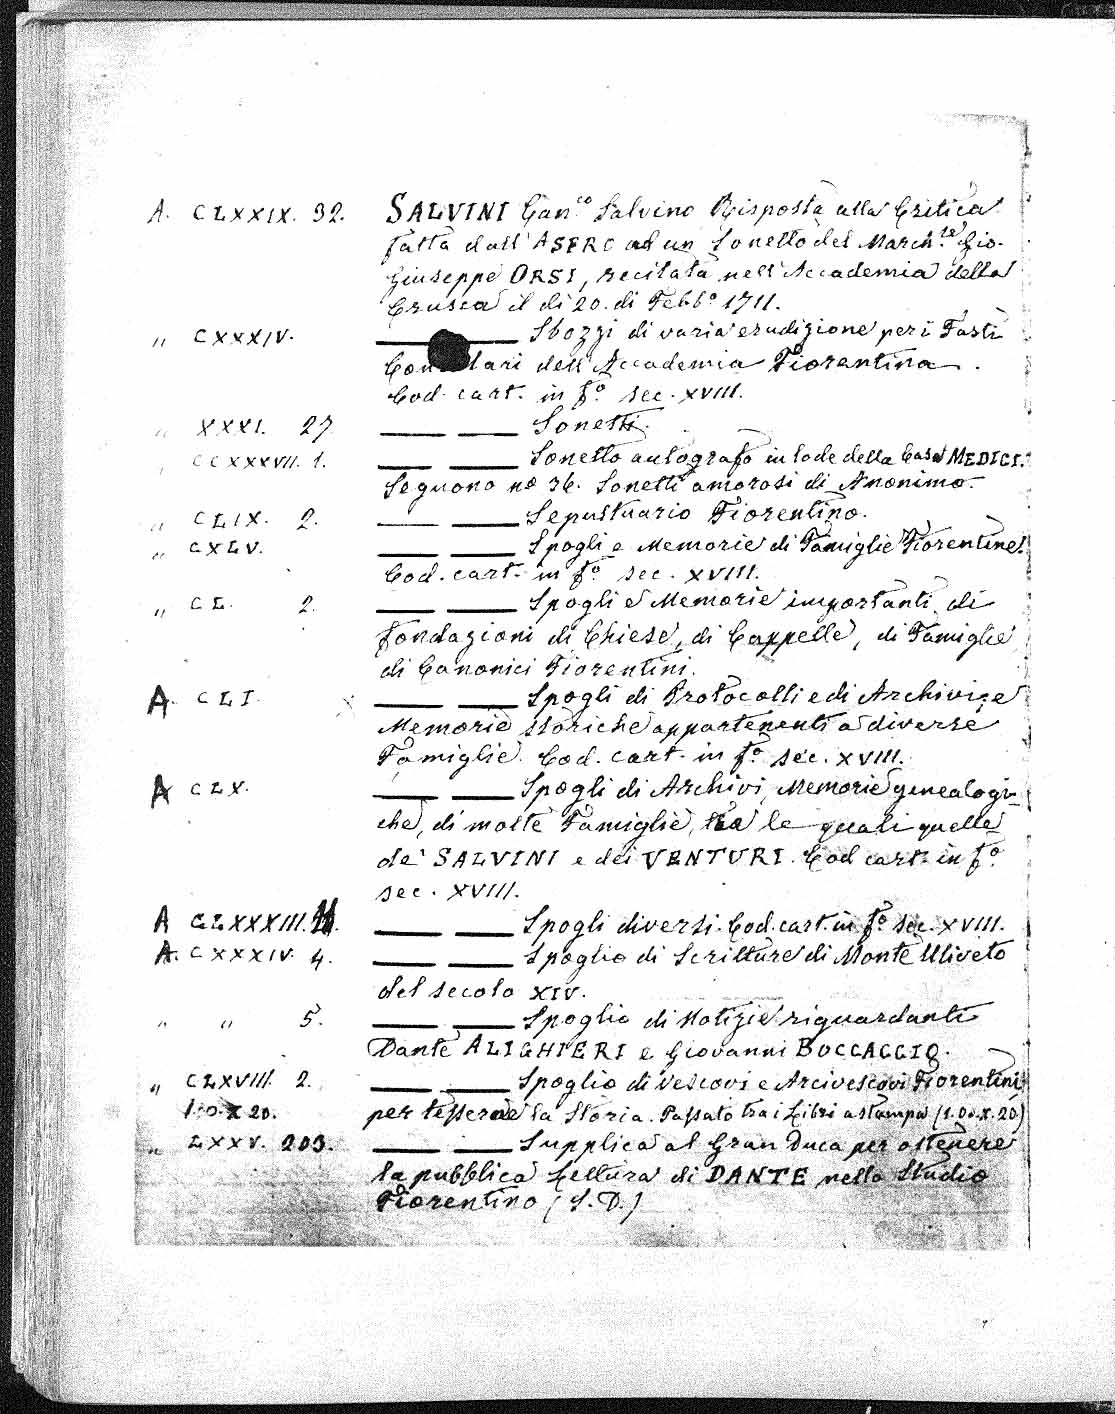 A. CLXXIX. 32. SALVINI Can.co Salvino Risposta alla Critica
fatta dall' ad un Sonetto del March.se Gio.
Giuseppe ORSI, recitata nell'Accademia della
Crusca il dì 20. di Febb.o 1711.
" CXXXIV. —— —— Sbozzi di varia erudizione per i Fasti
dell'Accademia Fiorentina.
Cod. cart. in f.o sec. XVIII.
" XXXI. 27. —— —— Sonetti.
" CCXXXVII. 1. —— —— Sonetto autografo in lode della Casa MEDICI.
Seguono no 36. Sonetti amorosi di Anonimo.
" CLIX. 2. —— —— Sepultuario Fiorentino.
" CXLV. —— —— Spogli e Memorie di Famiglie Fiorentine.
Cod. cart. in f.o sec. XVIII.
" CL. 2. —— —— Spogli e Memorie importanti di
fondazioni di Chiese, di Cappelle, di Famiglie
di Canonici Fiorentini.
A. CLI. —— —— Spogli di Protocolli e di Archivi, e
Memorie storiche appartenenti a diverse
Famiglie. Cod. cart. in f.o sec. XVIII.
A CLX. —— —— Spogli di Archivi, Memorie genealogi-
che, di molte Famiglie, tra le quali quelle
de' SALVINI e dei VENTURI. Cod. cart. in f.o
sec. XVIII.
A CLXXXIII. —— —— Spogli diversi. Cod. cart. in f.o sec. XVIII.
A. CXXXIV. 4. —— —— Spoglio di Scritture di Monte Uliveto
del secolo XIV.
" " 5. —— —— Spoglio di Notizie riguardanti
Dante ALIGHIERI e Giovanni BOCCACCIO.
" CLXVIII. 2. —— —— Spoglio di Vescovi e Arcivescovi Fiorentini
1.0.X 20. per tesserne la Storia. Passato tra i Libri a stampa (1.00.X.20)
" LXXV. 203. —— —— Supplica al Gran Duca per ottenere
la pubblica Lettura di DANTE nello Studio
Fiorentino (S.D.)